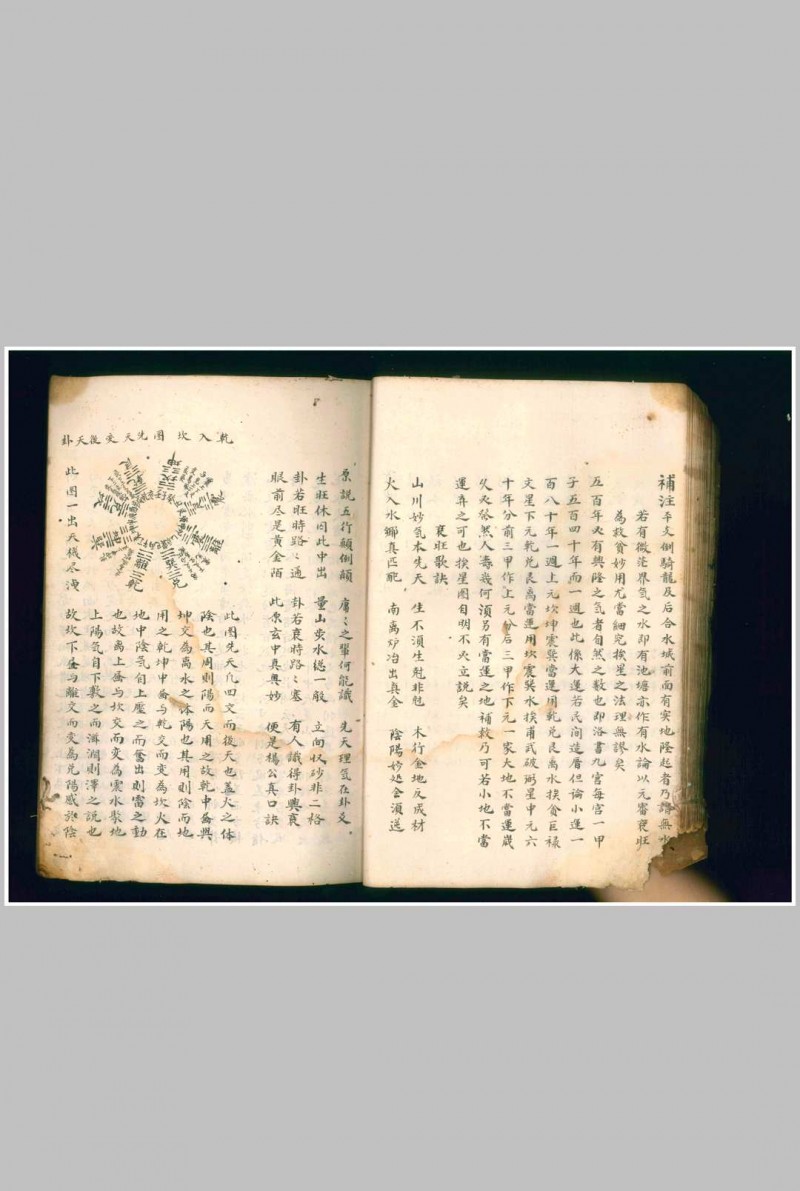 補注平支倒騎龍及后合水城前面有实地隆起者乃謂無水
若有微茫界气之水却有池塘亦作有水論以元審衰旺
為救貧妙用尤當細究挨星之法理無謬矣
五百年必有興隆之气者自然之数也即洛書九宮每宮一甲
子五百四十年而一週也此係大運若民间造眉但論小運一
百八十年一週上元坎坤震巽當運用乾兑艮离水挨貪巨禄
文星下元乾兑艮离當運用坎震巽水挨甫武破弼星中元六
十年分前三甲作上元分后三甲作下元一家大地不當運歲
久必發然人壽幾何須另有當運之地補救乃可若小地不當
運弃之可也挨星图自明不必立説矣
衰旺歌訣
山川妙气本先天 生不須生尅非尅 木行金地反成材
火入水鄉真匹配 南离炉冶出真金 陰陽妙処全須送
原説五行顛倒顛 庸〻之輩何能識 先天理気在卦爻
生旺休囚此中出 量山茭水総一般 立向収砂非二格
卦若旺時路〻通 卦若衰時路〻塞 有人識得卦興衰
眼前尽是黄金陌 此原玄中真奥妙 便是楊公真口訣
乾入坎图先天变後天卦
此图先天八四交而後天也盖火之体
陰也其周則陽而天用之故乾中畨與
坤交為离水之体陽也其用則陰而地
用之乾坤中畨与乾交而变為坎火在
地中陰気自上壓之而奮出則雷之動
也故离上畨与坎交而变為震水聚地
上陽気自下敷之而滋潤則澤之説也
此图一出天機尽洩 故坎下畨与離交而变為兑陽感於陰